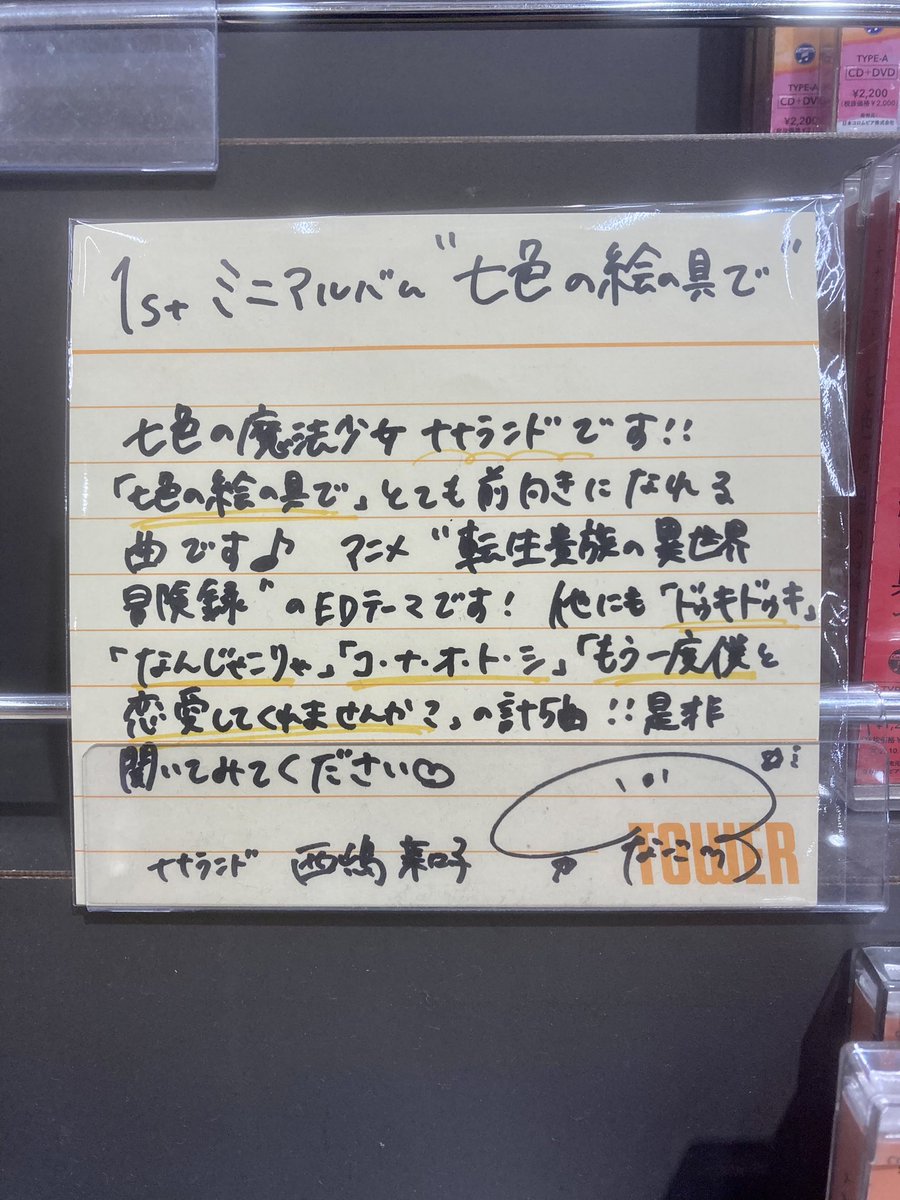 TYPE-A
CD+DVD
¥2,200
(税抜価格¥2,000)
日本コロムビア株式会社
TYPE-A
CD+DVD
¥2,200
1st ミニアルバム "七色の絵の具で"
七色の魔法少女 ナナランドです!!
「七色の絵の具で」とても前向きになれる
曲です♪ アニメ"転生貴族の異世界
冒険録"のEDテーマです! 他にも「ドゥキドゥキ」
「なんじゃこりゃ」「コ・ナ・オ・ト・シ」「もう一度僕と
恋愛してくれませんか?」の計5曲!!是非
聞いてみてください♡
ナナランド 西嶋菜々子
なこつ
TOWER